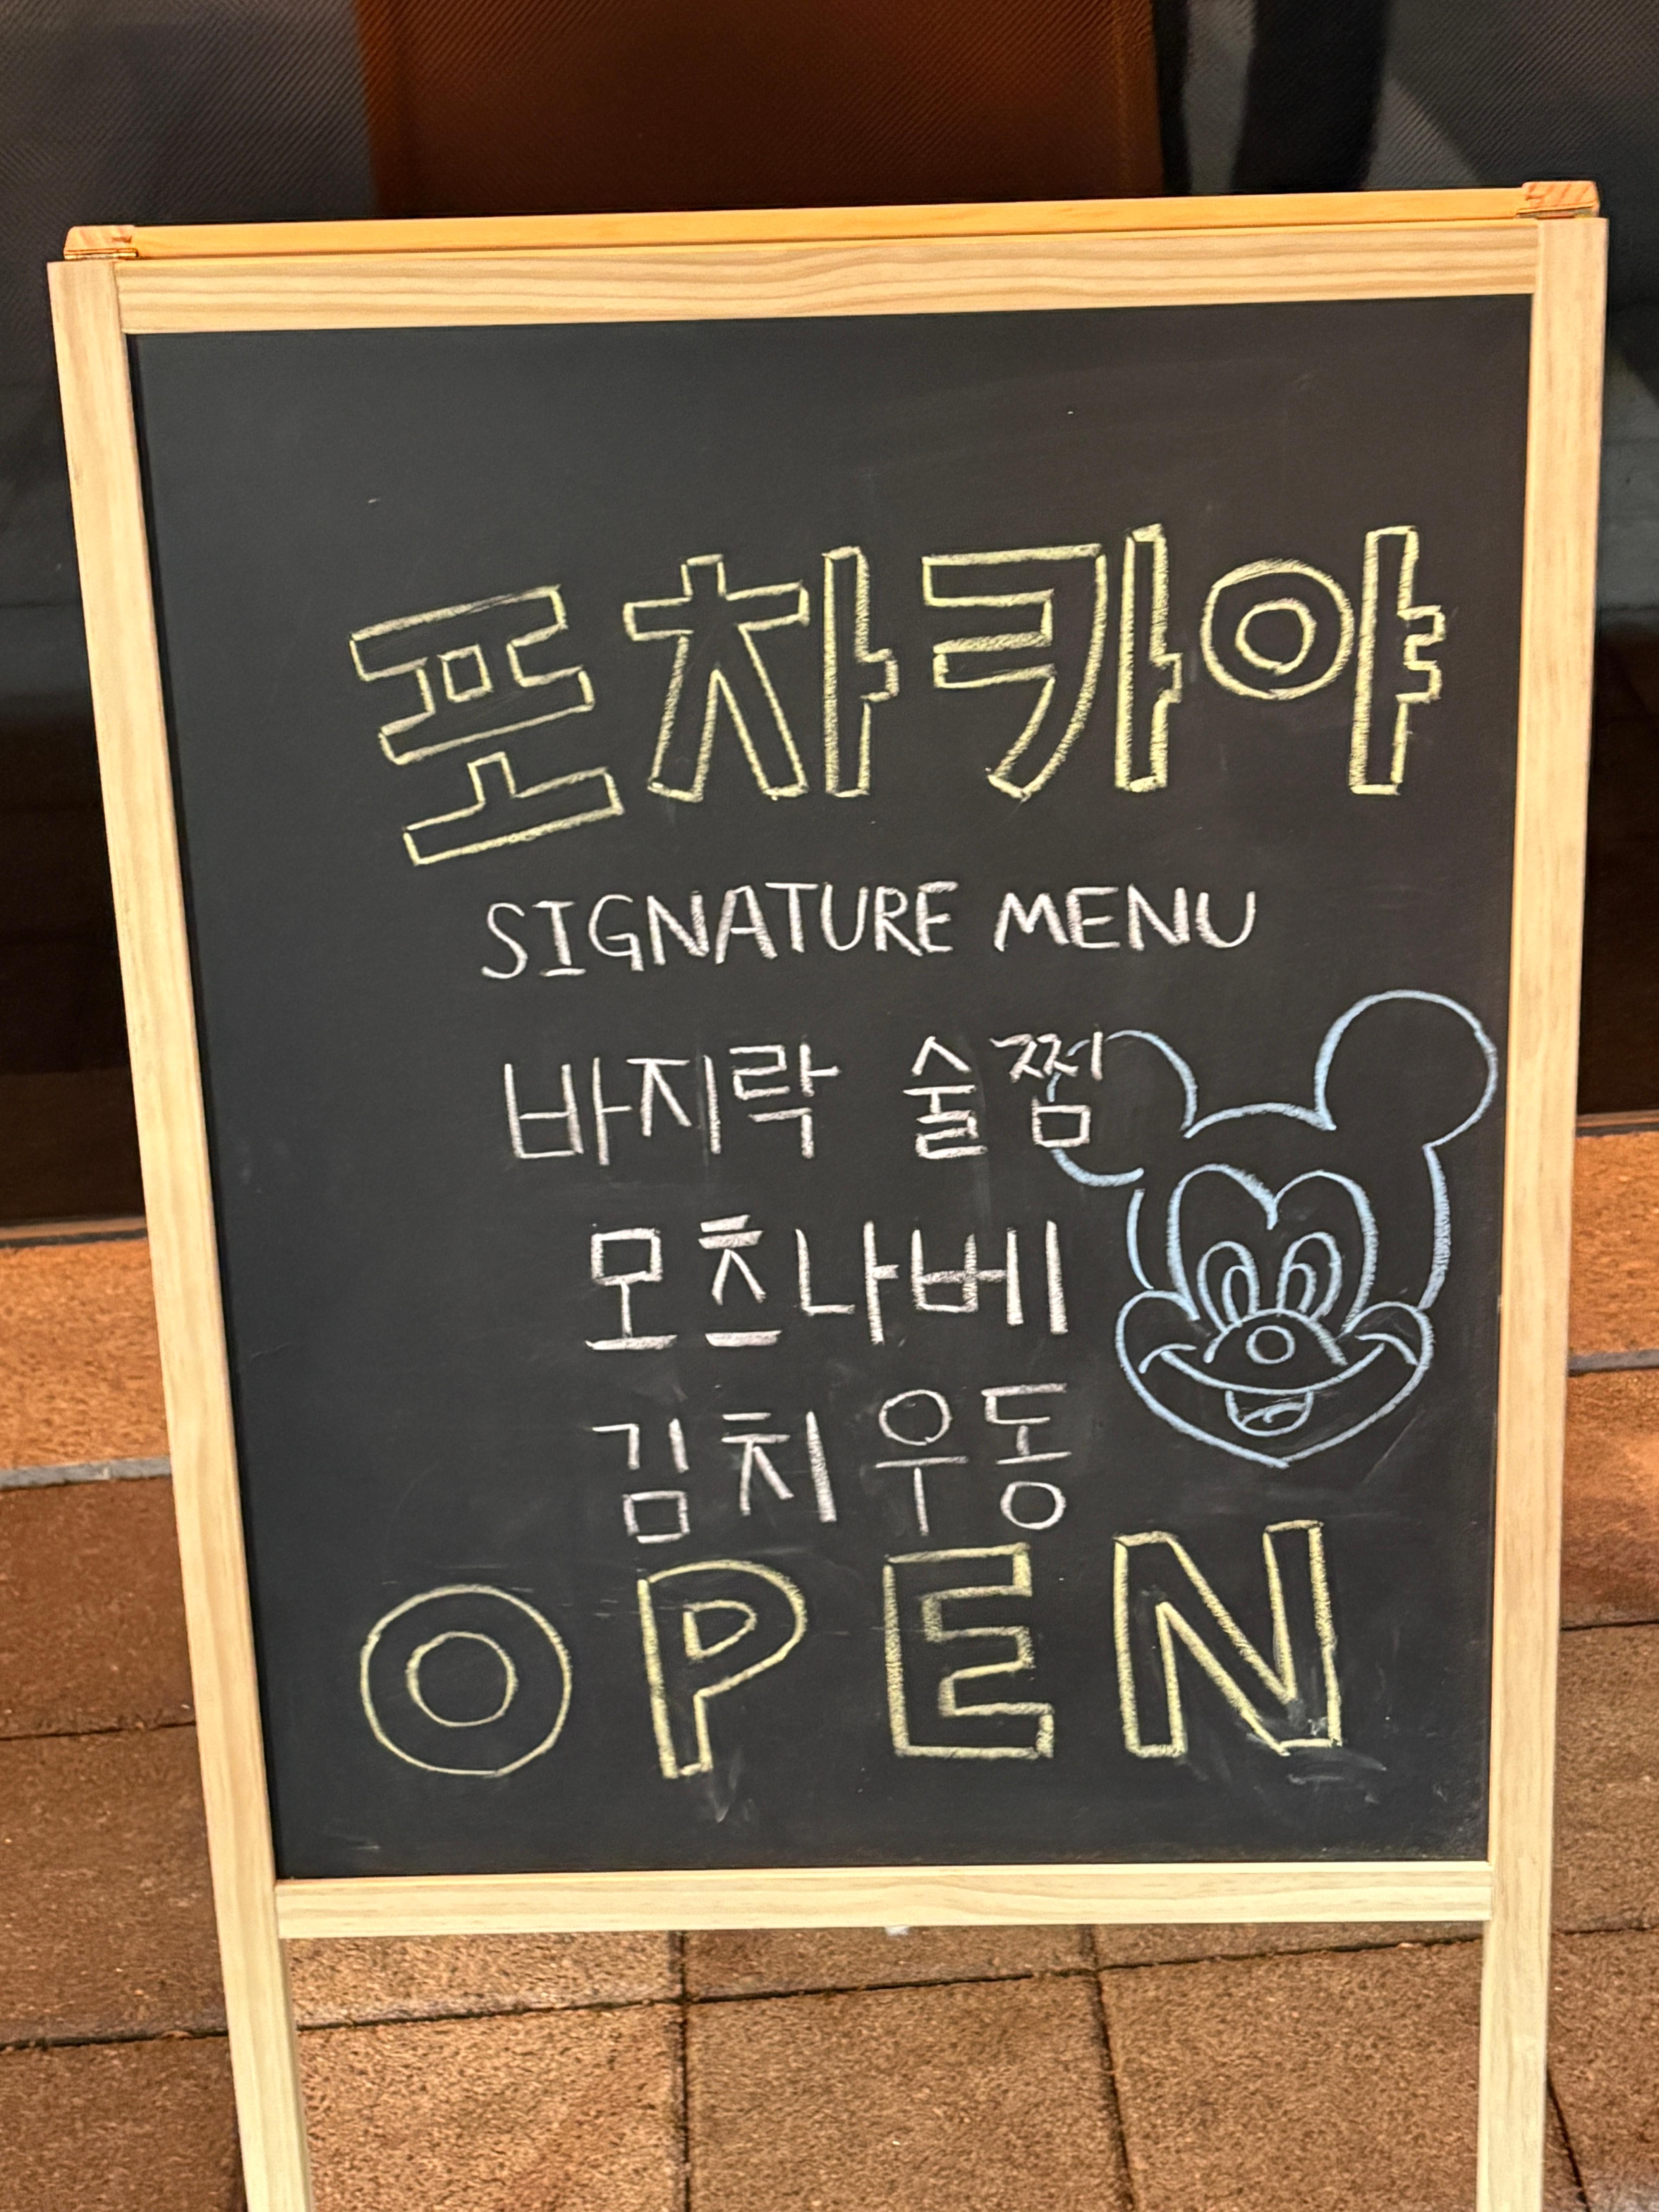 포차카야
SIGNATURE MENU
바지락 술찜
모츠나베
김치우동
OPEN